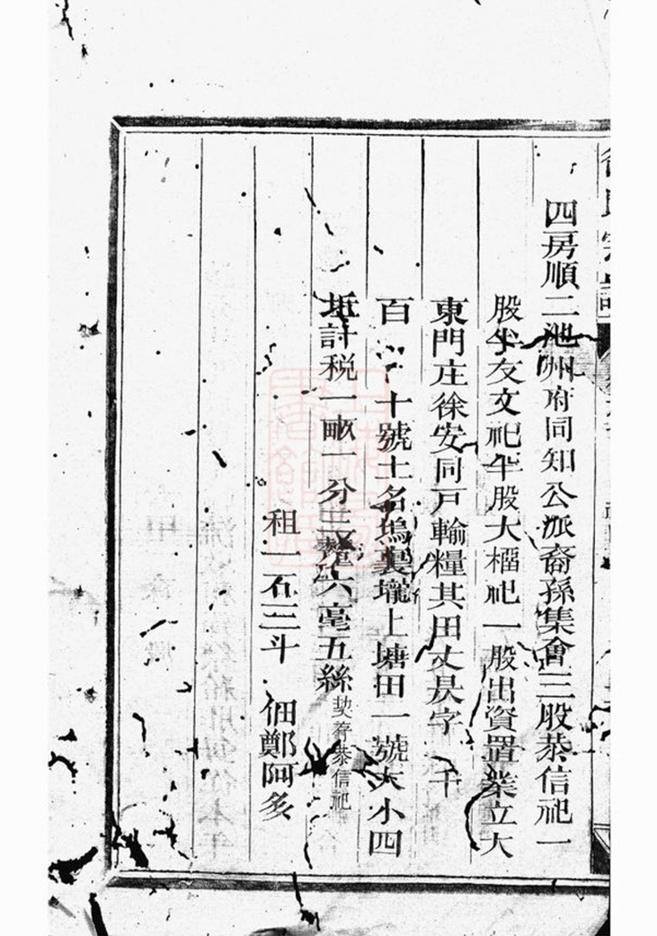 徐氏宗譜
四房順二池州府同知公派裔孫集會三股恭信祀一
股半友文祀半股大樞祀一股出資置業立大
東門庄徐安同戶輸糧其田丈艮字 千
百 十號土名塢裏壠上塘田一號大小四
坵計稅一畝一分三釐六毫五絲契存恭信祀
租一石三斗 佃鄭阿多